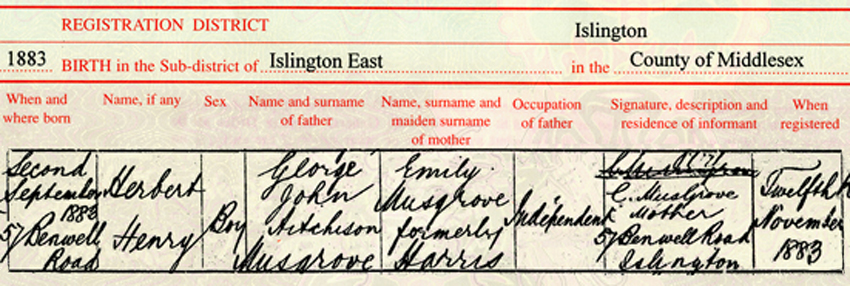 REGISTRATION DISTRICT Islington
1883 BIRTH in the Sub-district of Islington East in the County of Middlesex
When and where born
Name, if any
Sex
Name and surname of father
Name, surname and maiden surname of mother
Occupation of father
Signature, description and residence of informant
When registered
Second
September
1883
57 Benwell
Road
Herbert
Henry
Boy
George
John
Aitchison
Musgrove
Emily
Musgrove
formerly
Harris
Independent
E. Musgrove
Mother
57 Benwell Road
Islington
Twelfth
November
1883